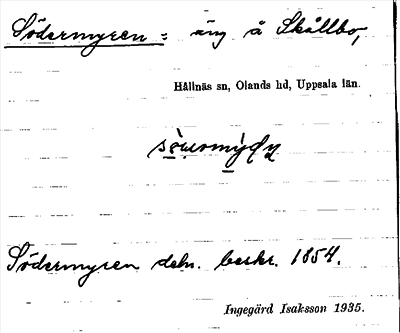 Södermyren = äng å Skållbo,
Hållnäs sn, Olands hd, Uppsala län.
Södermyren deln. beskr. 1854.
Ingegärd Isaksson 1935.